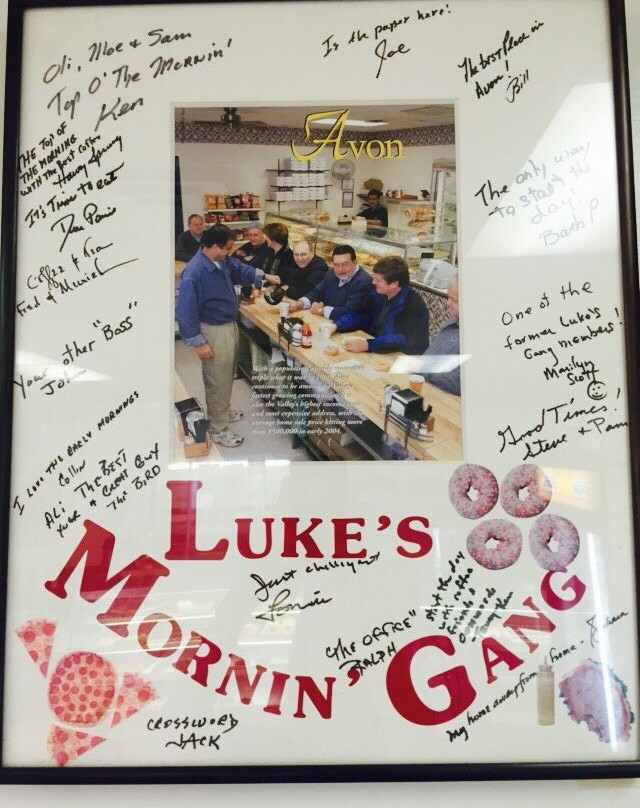 Oli, Moe & Sam
Top O' The Mornin'
Ken
Is the paper here?
Joe
The best place in
Avon!
Bill
THE TOP OF
THE MORNING
WITH THE BEST COFFEE
It's Time to eat
Coffee &
Fred &
Your other "Boss"
John
I LOVE THE EARLY MORNINGS
Collin
ALI THE BEST
THE BIRD
The only way
to start the
day!
One of the
former Luke's
Gang members!
Marilyn
Scott
Good Times!
Steve + Pam
Avon
With a population already more than
triple what it was in
continues to be among the
fastest growing communities.
also the Valley's highest income
and most expensive address, with the
average home sale price hitting more
than $500,000 in early 2004.
LUKE'S
MORNIN' GANG
Just chilling
"THE OFFICE"
RALPH
Start the day
with coffee
friends &
CROSSWORD
JACK
My home away from home -